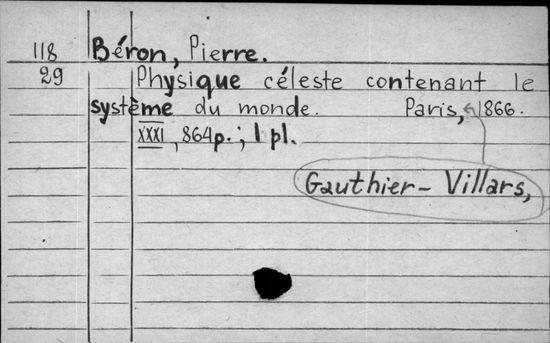 118 Béron, Pierre.
29 Physique céleste contenant le
système du monde. Paris, 1866.
XXXI, 864p.; 1 pl.
Gauthier-Villars,